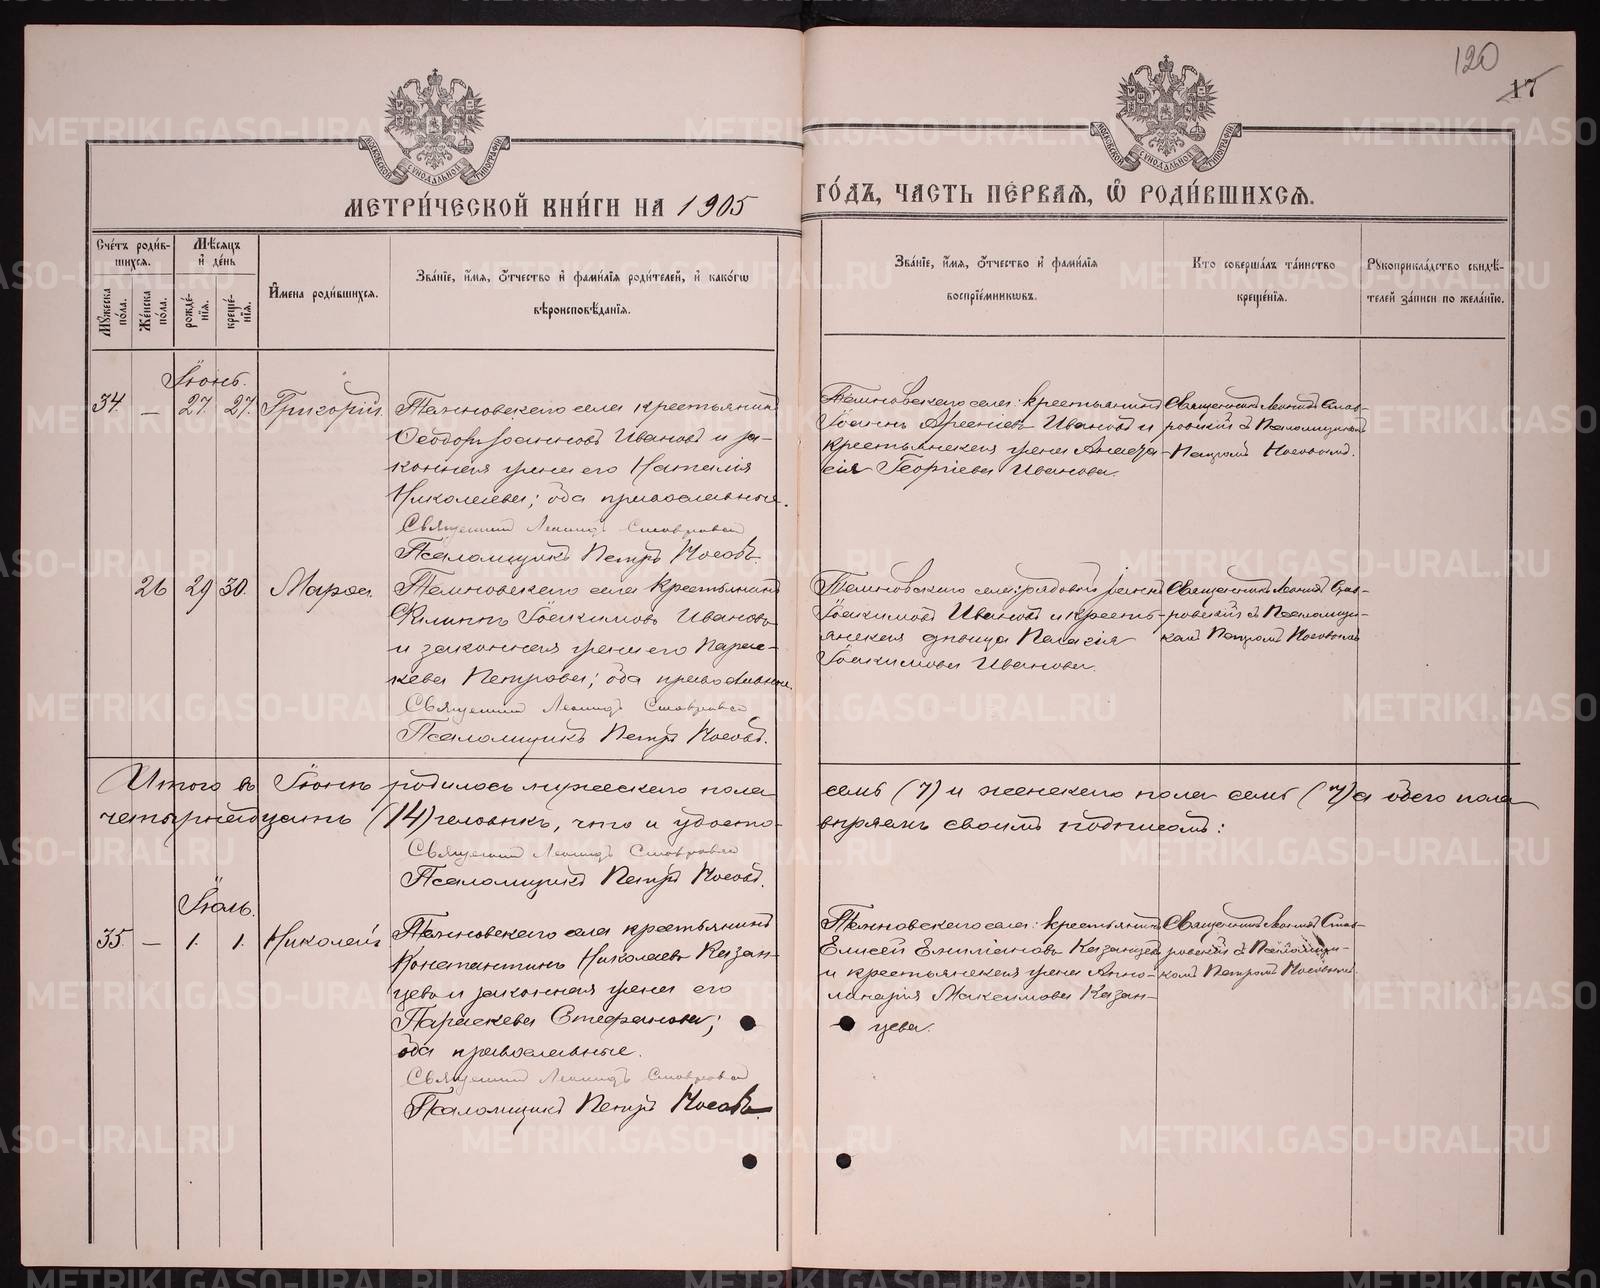 120
17
МОСКОВСКОЙ СѴНОДАЛЬНОЙ ТИПОГРАФІИ
МОСКОВСКОЙ СѴНОДАЛЬНОЙ ТИПОГРАФІИ
МЕТРИ́ЧЕСКОЙ КНИ́ГИ НА 1905 ГО́ДЪ, ЧАСТЬ ПЕ́РВАЯ, Ѡ РОДИ́ВШИХСЯ.
Сче́тъ роди́в-
шихся.
Мꙋ́жеска по́ла.
Же́нска по́ла.
Мѣ́сяцъ
и҆ де́нь
рожде́-
нія.
креще́-
нія.
И҆мена роди́вшихся.
Зва́ніе, и҆́мя, ѻ҆́тчество и҆ фами́лія роди́телей, и҆ како́гѡ
вѣроисповѣ́данія.
Зва́ніе, и҆́мя, ѻ҆́тчество и҆ фами́лія
воспріе́мникѡвъ.
Кто соверша́лъ та́инство
креще́нія.
Рꙋкоприкла́дство свидѣ́-
телей за́писи по жела́нію.
Іюнь.
34. — 27. 27. Григорій.
села крестьянинъ
Ѳеодоръ Іоанновъ Ивановъ и за-
конная жена его Наталія
Николаева; оба православные.
Священникъ Леонидъ
Псаломщикъ Петръ Носовъ.
села: крестьянинъ
Іоаннъ Ивановъ и
крестьянская жена Анаста-
сія Георгіева Иванова.
Священникъ Леонидъ
съ Псаломщикомъ
Петромъ Носовымъ.
26 29 30. Марѳа.
села крестьянинъ
Филиппъ Іоакимовъ Ивановъ
и законная жена его Парас-
кева Петрова; оба православные.
Священникъ Леонидъ
Псаломщикъ Петръ Носовъ.
села: рядовой
Іоакимовъ Ивановъ и кресть-
янская дѣвица Пелагія
Іоакимова Иванова.
Священникъ Леонидъ
съ Псаломщи-
комъ Петромъ Носовымъ
Итого въ Іюнѣ родилось мужескаго пола семь (7) и женскаго пола семь (7) а обоего пола
четырнадцать (14) человѣкъ, что и удосто-
вѣряемъ своимъ подписомъ:
Священникъ Леонидъ
Псаломщикъ Петръ Носовъ.
Іюль.
35. — 1. 1. Николай
села крестьянинъ
Константинъ Николаевъ Казан-
цевъ и законная жена его
Параскева Стефанова;
оба православные.
Священникъ Леонидъ
Псаломщикъ Петръ Носовъ.
села: крестьянинъ
Елисей Казанцевъ
и крестьянская жена Аппо-
линарія Максимова Казан-
цева.
Священникъ Леонидъ
съ Псаломщи-
комъ Петромъ Носовымъ.
METRIKI.GASO-URAL.RU